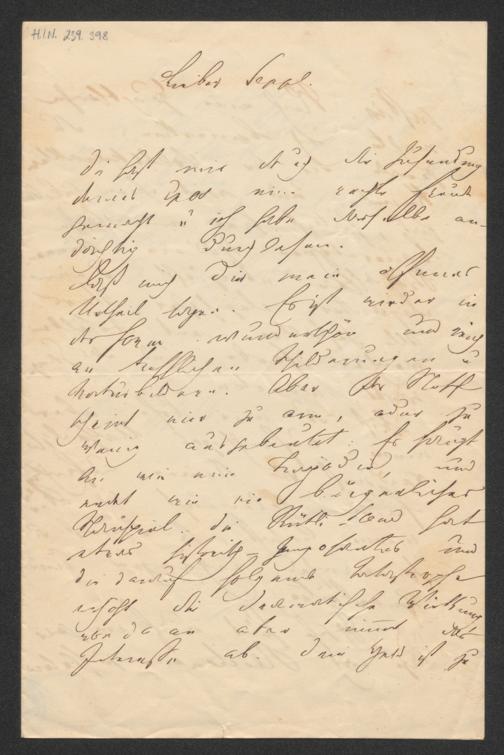 H.I.N. 239.398
Lieber Seppl.
Du hast mir durch die Zusendung
deines Epos eine rechte Freude
gemacht u ich habe dasselbe an-
dächtig durchgelesen.
Laß mich dir mein offenes
Urtheil sagen. Es ist wieder in
der Form wunderschön und reich
an trefflichen Schilderungen u
Naturbildern. Aber der Stoff
scheint mir zu arm, oder zu
wenig ausgebeutet. Es
wie eine Tragödie, und
endet wie ein bürgerliches
Schauspiel. Die Rütli hat
etwas und
die darauf folgende Katastrophe
erhöht die dramatische Wirkung
von da an aber nimmt das
Interesse ab. Dein Held ist zu